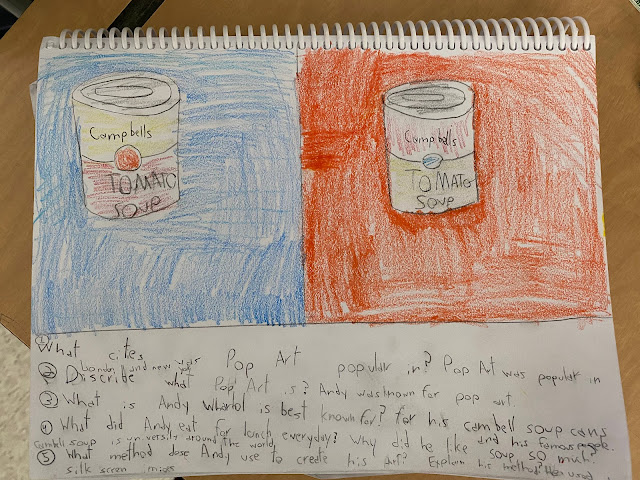 Campbells
TOMATO
SOUP
Campbells
TOMATO
SOUP
① What cites was Pop Art popular in? Pop Art was popular in
london and new york
② Discribe what Pop Art is? Andy was known for pop art.
③ What is Andy Wharlol is best known for? for his cambell soup cans
and his famous people.
④ What did Andy eat for lunch everyday? Why did he like soup so much?
Cambell soup is universily around the world
⑤ What method dose Andy use to create his art? Explain his method? He used
silk screen